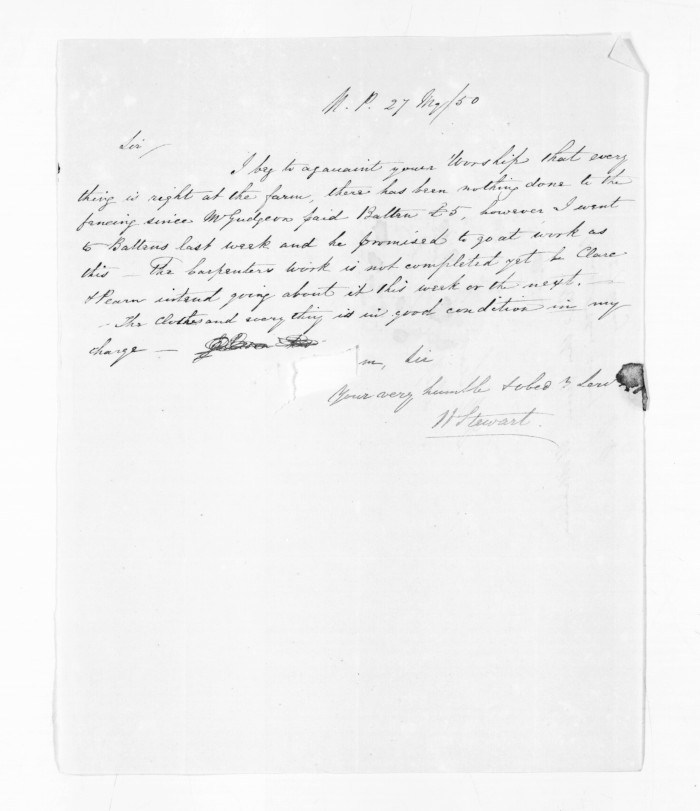 N. P. 27 My/50
Sir/
I beg to aquuaint your Worship that every
thing is right at the farm, there has been nothing done to the
fencing since Mr Gudgeon paid Batten £5, however I went
to Battens last week and he promised to go at work as
this – The Carpenters work is not completed yet be Clare
& Pearn intend going about it this week or the next. –
– The Cloths and everything is in good condition in my
charge –
m, Sir
Your very humble & obedt Serv
W Stewart.